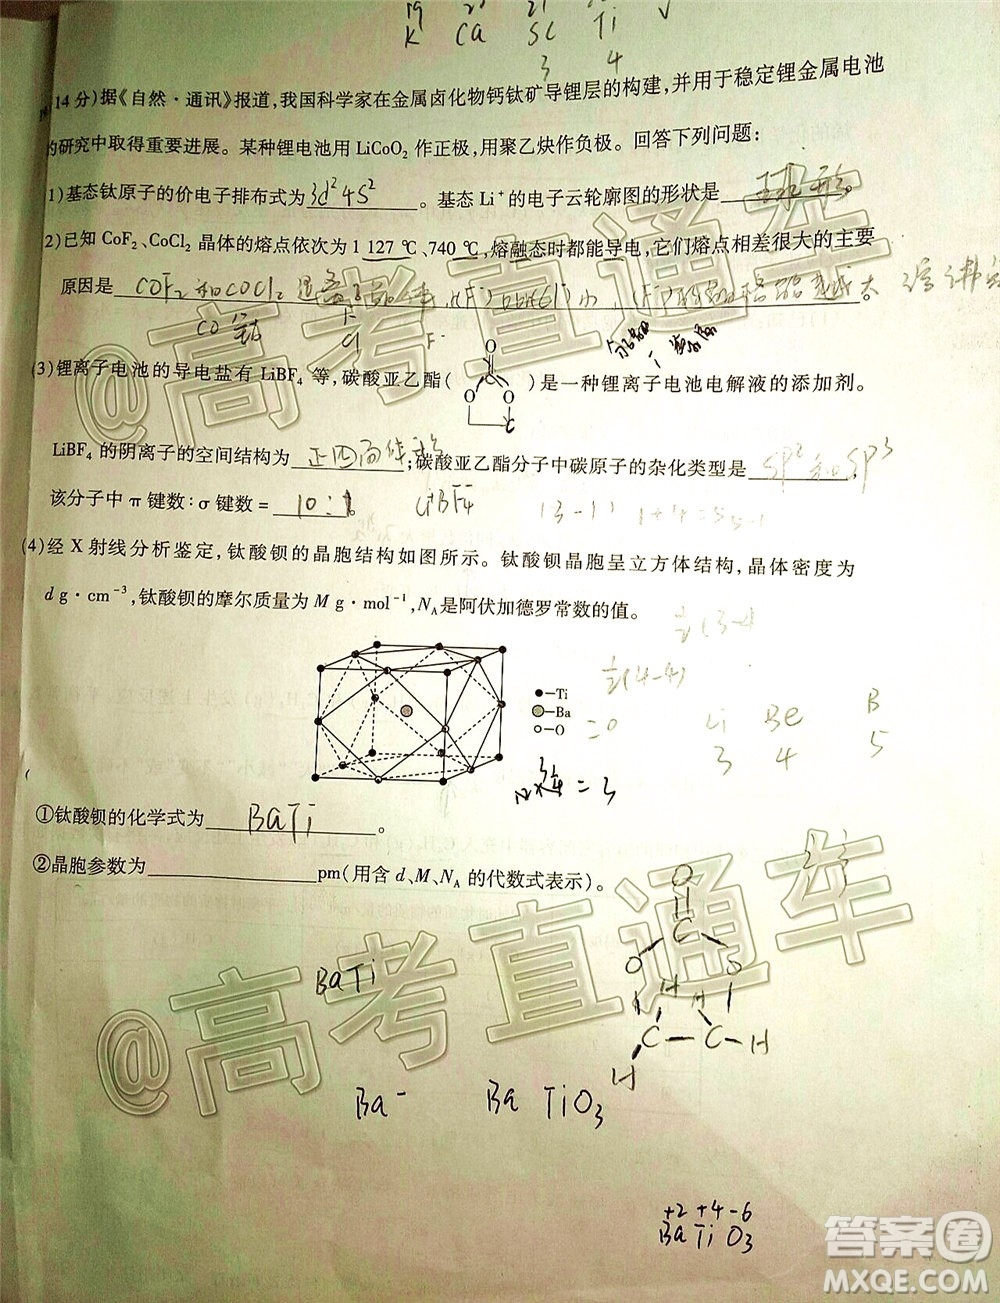 19
K Ca Sc Ti
3 4
14分)据《自然·通讯》报道,我国科学家在金属卤化物钙钛矿导锂层的构建,并用于稳定锂金属电池
的研究中取得重要进展。某种锂电池用 LiCoO₂ 作正极,用聚乙炔作负极。回答下列问题:
1)基态钛原子的价电子排布式为 3d²4S² 。基态 Li⁺ 的电子云轮廓图的形状是 球形。
2)已知 CoF₂、CoCl₂ 晶体的熔点依次为 1 127 ℃、740 ℃,熔融态时都能导电,它们熔点相差很大的主要
原因是 COF₂和COCl₂
CO 钴 Cl F⁻
(3)锂离子电池的导电盐有 LiBF₄ 等,碳酸亚乙酯( O O O )是一种锂离子电池电解液的添加剂。
LiBF₄ 的阴离子的空间结构为 正四面体形;碳酸亚乙酯分子中碳原子的杂化类型是 SP²和SP³
该分子中 π 键数:σ 键数= 10:1。 LiBF₄
(4)经 X 射线分析鉴定,钛酸钡的晶胞结构如图所示。钛酸钡晶胞呈立方体结构,晶体密度为
d g·cm⁻³,钛酸钡的摩尔质量为 M g·mol⁻¹,N_A是阿伏加德罗常数的值。
½(3-4
½(4-4)
=0
●—Ti
—Ba
○—O
Li Be B
3 4 5
= 3
①钛酸钡的化学式为 BaTi 。
②晶胞参数为 pm(用含 d、M、N_A 的代数式表示)。
BaTi
O
C
O O
H H
C C H
H
Ba⁻ Ba TiO₃
+2 +4 -6
BaTiO₃
@高考直通车
@高考直通车
答案圈
MXQE.COM